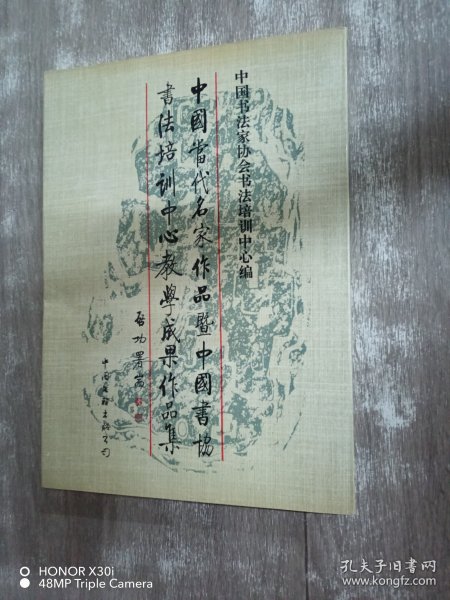 中国书法家协会书法培训中心编
中國當代名家作品暨中國書協
書法培训中心教學成果作品集
启功署崗
HONOR X30i
48MP Triple Camera
孔夫子旧书网
www.kongfz.com